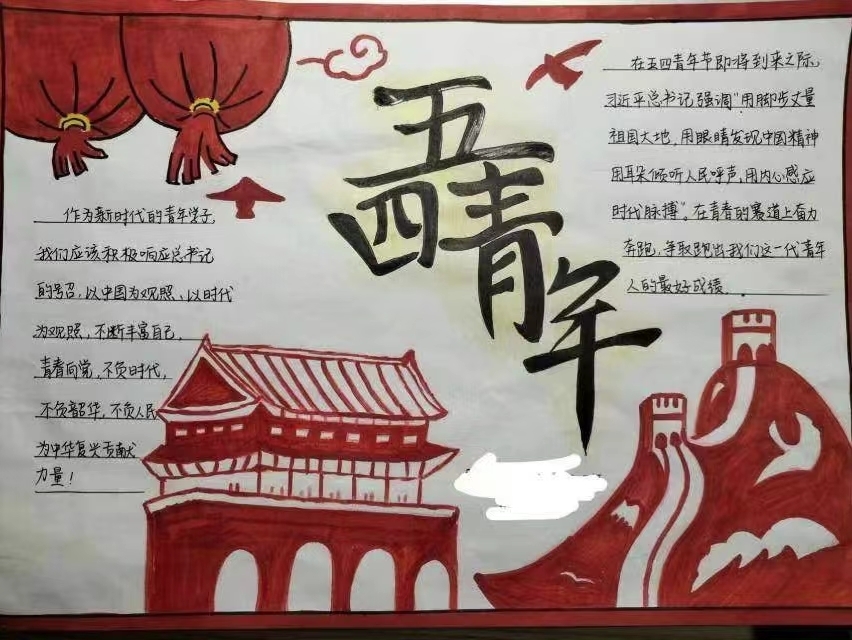 五四青年
作为新时代的青年学子,
我们应该积极响应总书记
的号召,以中国为观照、以时代
为观照,不断丰富自己,
青春向党,不负时代,
不负韶华,不负人民
为中华复兴贡献
力量!
在五四青年节即将到来之际,
习近平总书记强调“用脚步丈量
祖国大地,用眼睛发现中国精神
用耳朵倾听人民呼声,用内心感应
时代脉搏”。在青春的赛道上奋力
奔跑,争取跑出我们这一代青年
人的最好成绩.